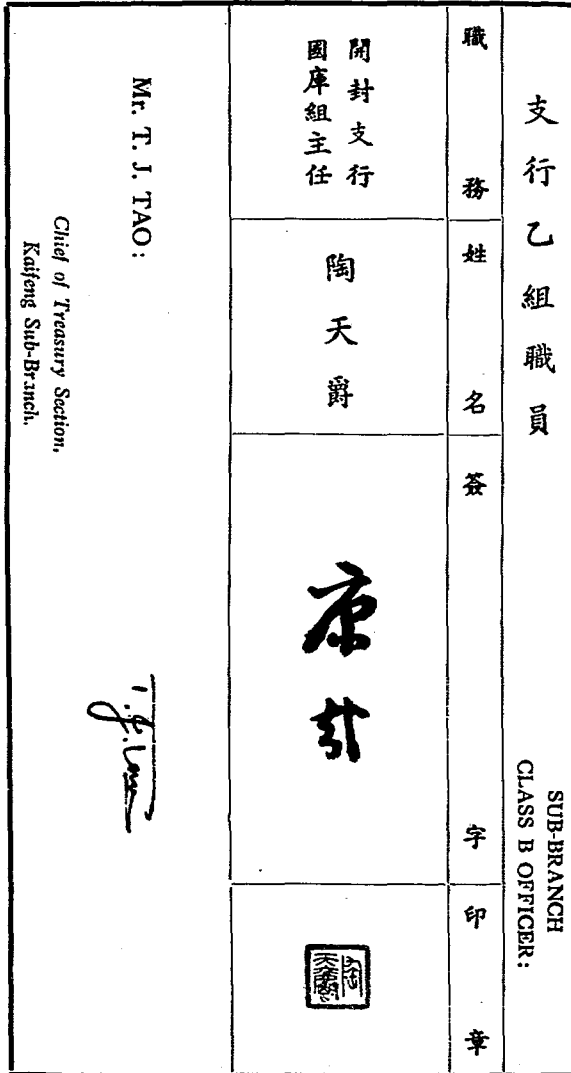 支行乙組職員
SUB-BRANCH
CLASS B OFFICER:
職務
姓名
簽字
印章
開封支行
國庫組主任
陶天爵
陶
天爵
Mr. T. J. TAO:
Chief of Treasury Section,
Kaifeng Sub-Branch.
T. J. Tao